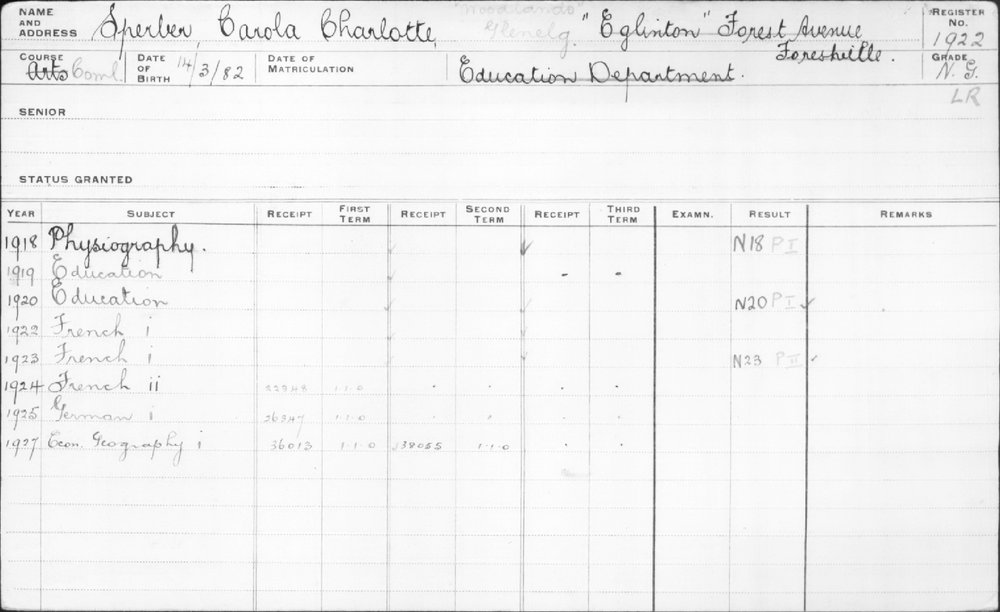 NAME AND ADDRESS Sperber, Carola Charlotte "Woodlands" Glenelg. "Eglinton" Forest Avenue Forestville. REGISTER No. 1922
COURSE Arts Coml. DATE OF BIRTH 14/3/82 DATE OF MATRICULATION Education Department. GRADE N. G.
LR
SENIOR
STATUS GRANTED
YEAR SUBJECT RECEIPT FIRST TERM RECEIPT SECOND TERM RECEIPT THIRD TERM EXAMN. RESULT REMARKS
1918 Physiography. ✓ ✓ N18 P I
1919 Education ✓ - -
1920 Education ✓ ✓ N20 P I ✓
1922 French i ✓ ✓
1923 French i ✓ ✓ N23 P II ✓
1924 French ii 22948 1·1·0 · · · ·
1925 German i 26347 1·1·0 · " · ·
1927 Econ. Geography i 36013 1·1·0 38055 1·1·0 · ·